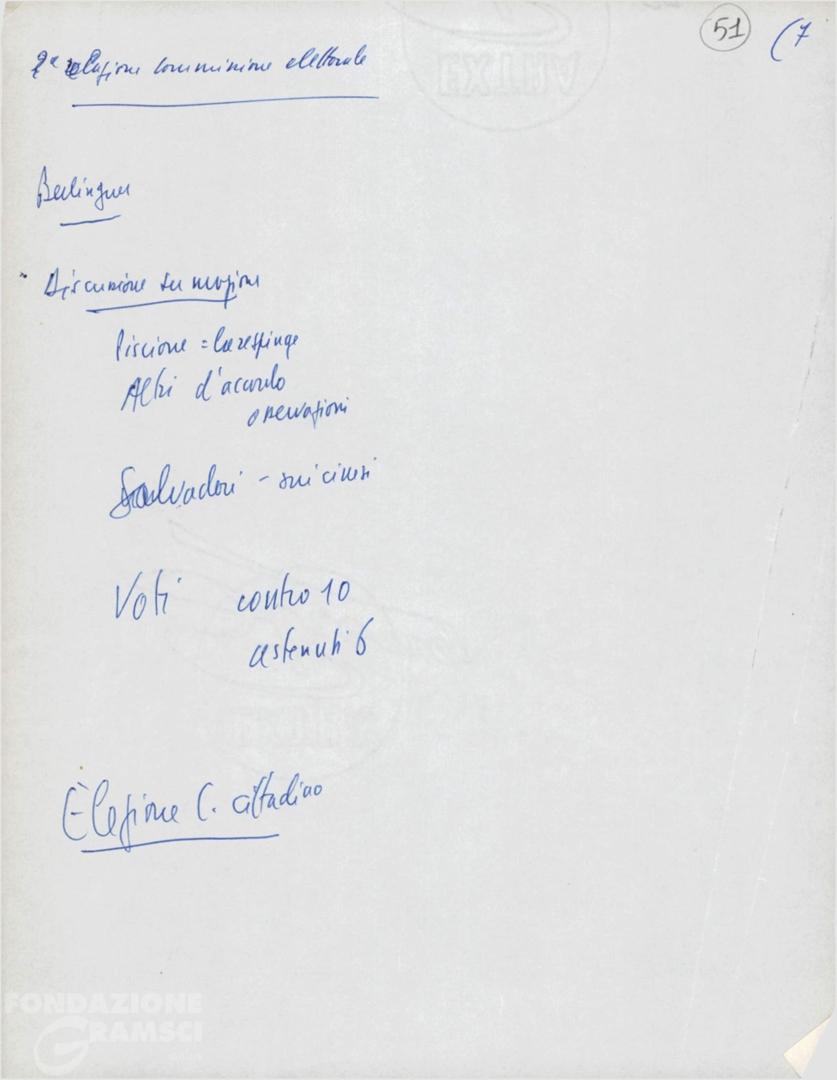 51 (7
2ª relazione commissione elettorale
Berlinguer
Discussione su mozione
Piscione = la respinge
Altri d'accordo
osservazioni
Salvadori - sui cinesi
Voti contro 10
astenuti 6
Elezione C. cittadino
FONDAZIONE
GRAMSCI